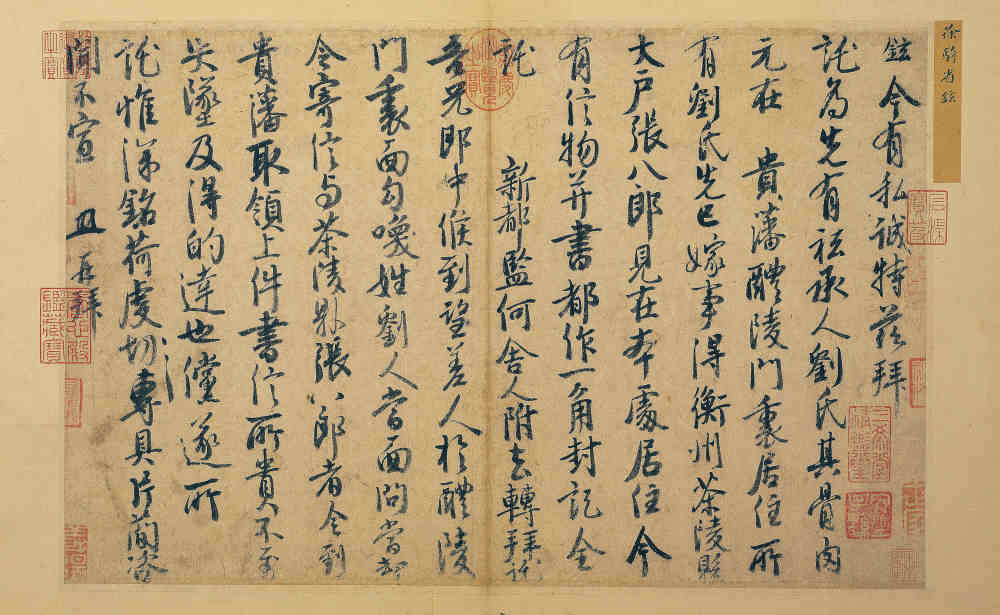 徐騎省鉉
鉉今有私誠特茲拜
託為先有祗承人劉氏其骨肉
元在 貴藩醴陵門裏居住所
有劉氏先已嫁事得衡州茶陵縣
大戶張八郎見在本處居住今
有信物并書都作一角封記全
託 新都監何舍人附去轉拜託
吾兄郎中候到望差人於醴陵
門裏面勾喚姓劉人當面問當卻
令寄信与茶陵縣張八郎者令到
貴藩取領上件書信所貴不至
失墜及得的達也儻遂所
託惟深銘荷虔切專具片簡咨
聞不宣 再拜